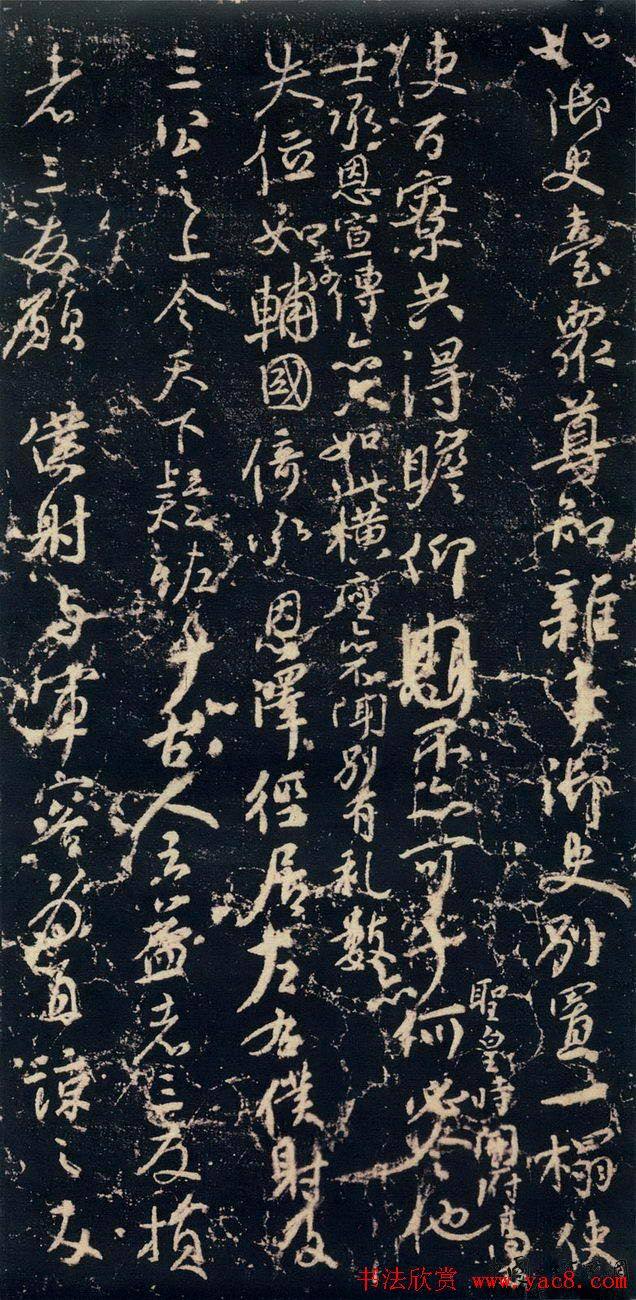 如御史臺衆尊知雜事御史別置一榻使
使百寮共得瞻仰不亦可乎何必令他
聖皇時開府高
士承恩宣傳亦只如此橫座亦不聞別有礼數亦
失位如李輔國倚承恩澤徑居左右僕射及
三公之上令天下疑怪乎古人云益者三友損
者三友願僕射與軍容為直諒之友
书法欣赏 www.yac8.com